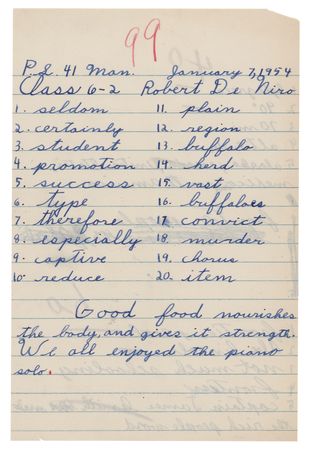 99
P.S. 41 Man. January 7, 1954
Class 6-2 Robert De Niro
1. seldom 11. plain
2. certainly 12. region
3. student 13. buffalo
4. promotion 14. herd
5. success 15. vast
6. type 16. buffaloes
7. therefore 17. convict
8. especially 18. murder
9. captive 19. chorus
10. reduce 20. item
Good food nourishes
the body, and gives it strength.
We all enjoyed the piano
solo.